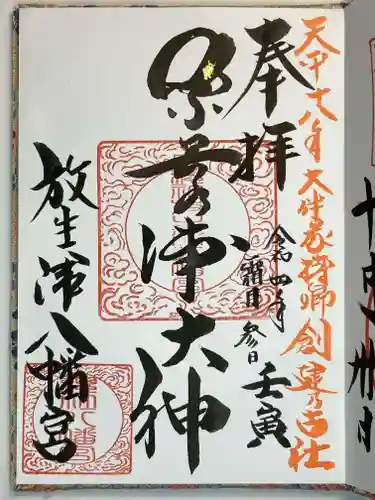 天平十八年大伴家持卿創建乃古社
奉拝
令和四年
霜月
参日
壬寅
奈呉の浦大神
放生津八幡宮